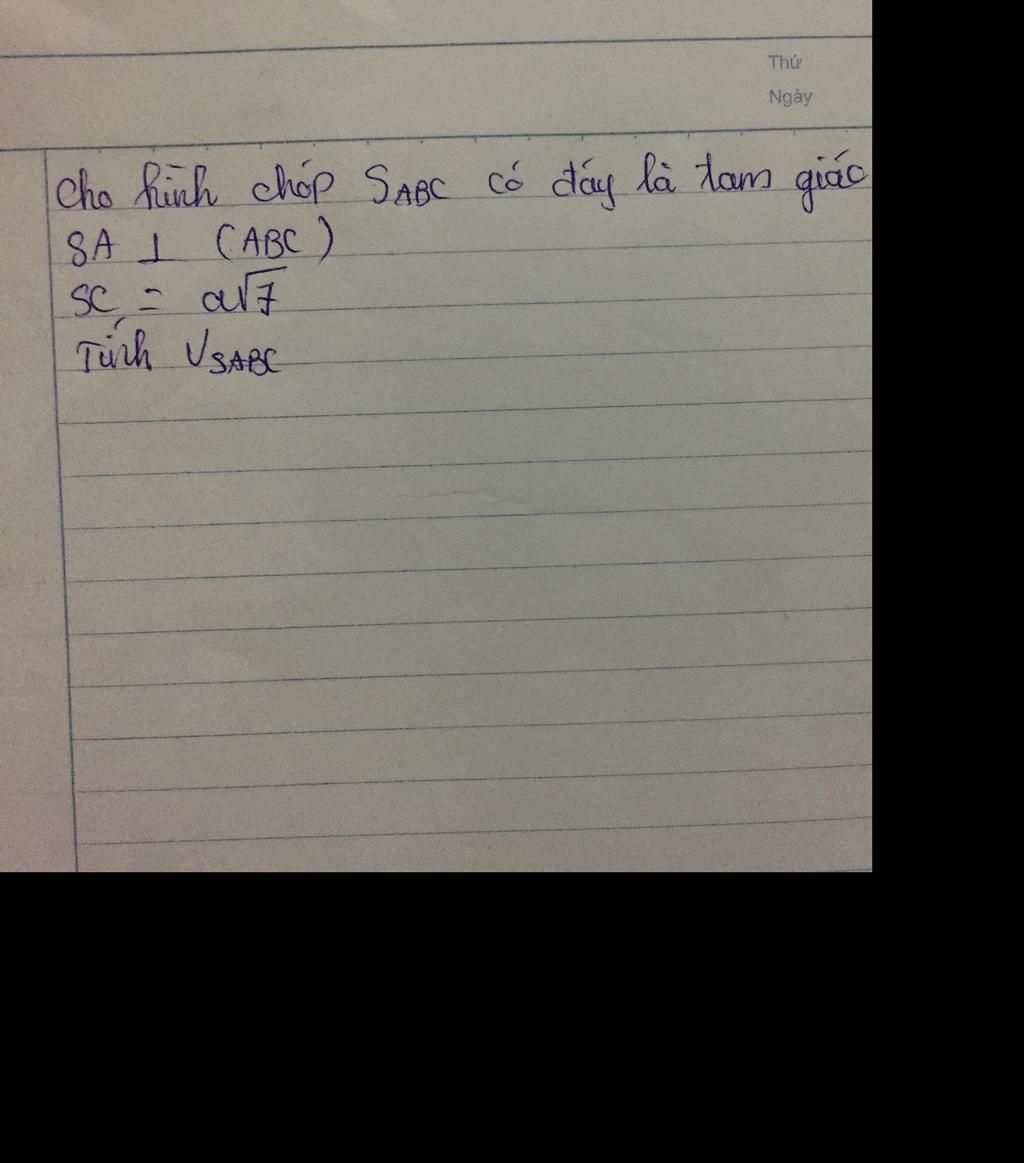 Thứ
Ngày
Cho hình chóp SABC có đáy là tam giác
SA ⊥ (ABC)
SC = a√7
Tính VSABC